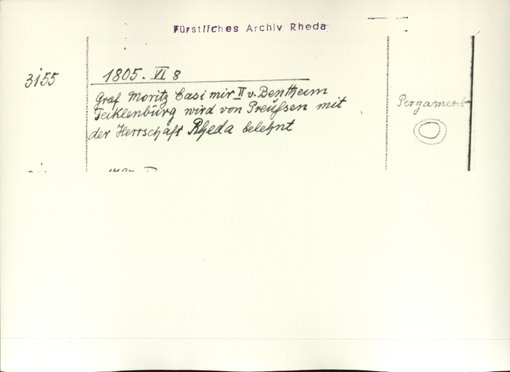 Fürstliches Archiv Rheda
3155
1805. VI. 8
Graf Moritz Casimir II v. Bentheim
Tecklenburg wird von Preußen mit
der Herrschaft Rheda belehnt
Pergament